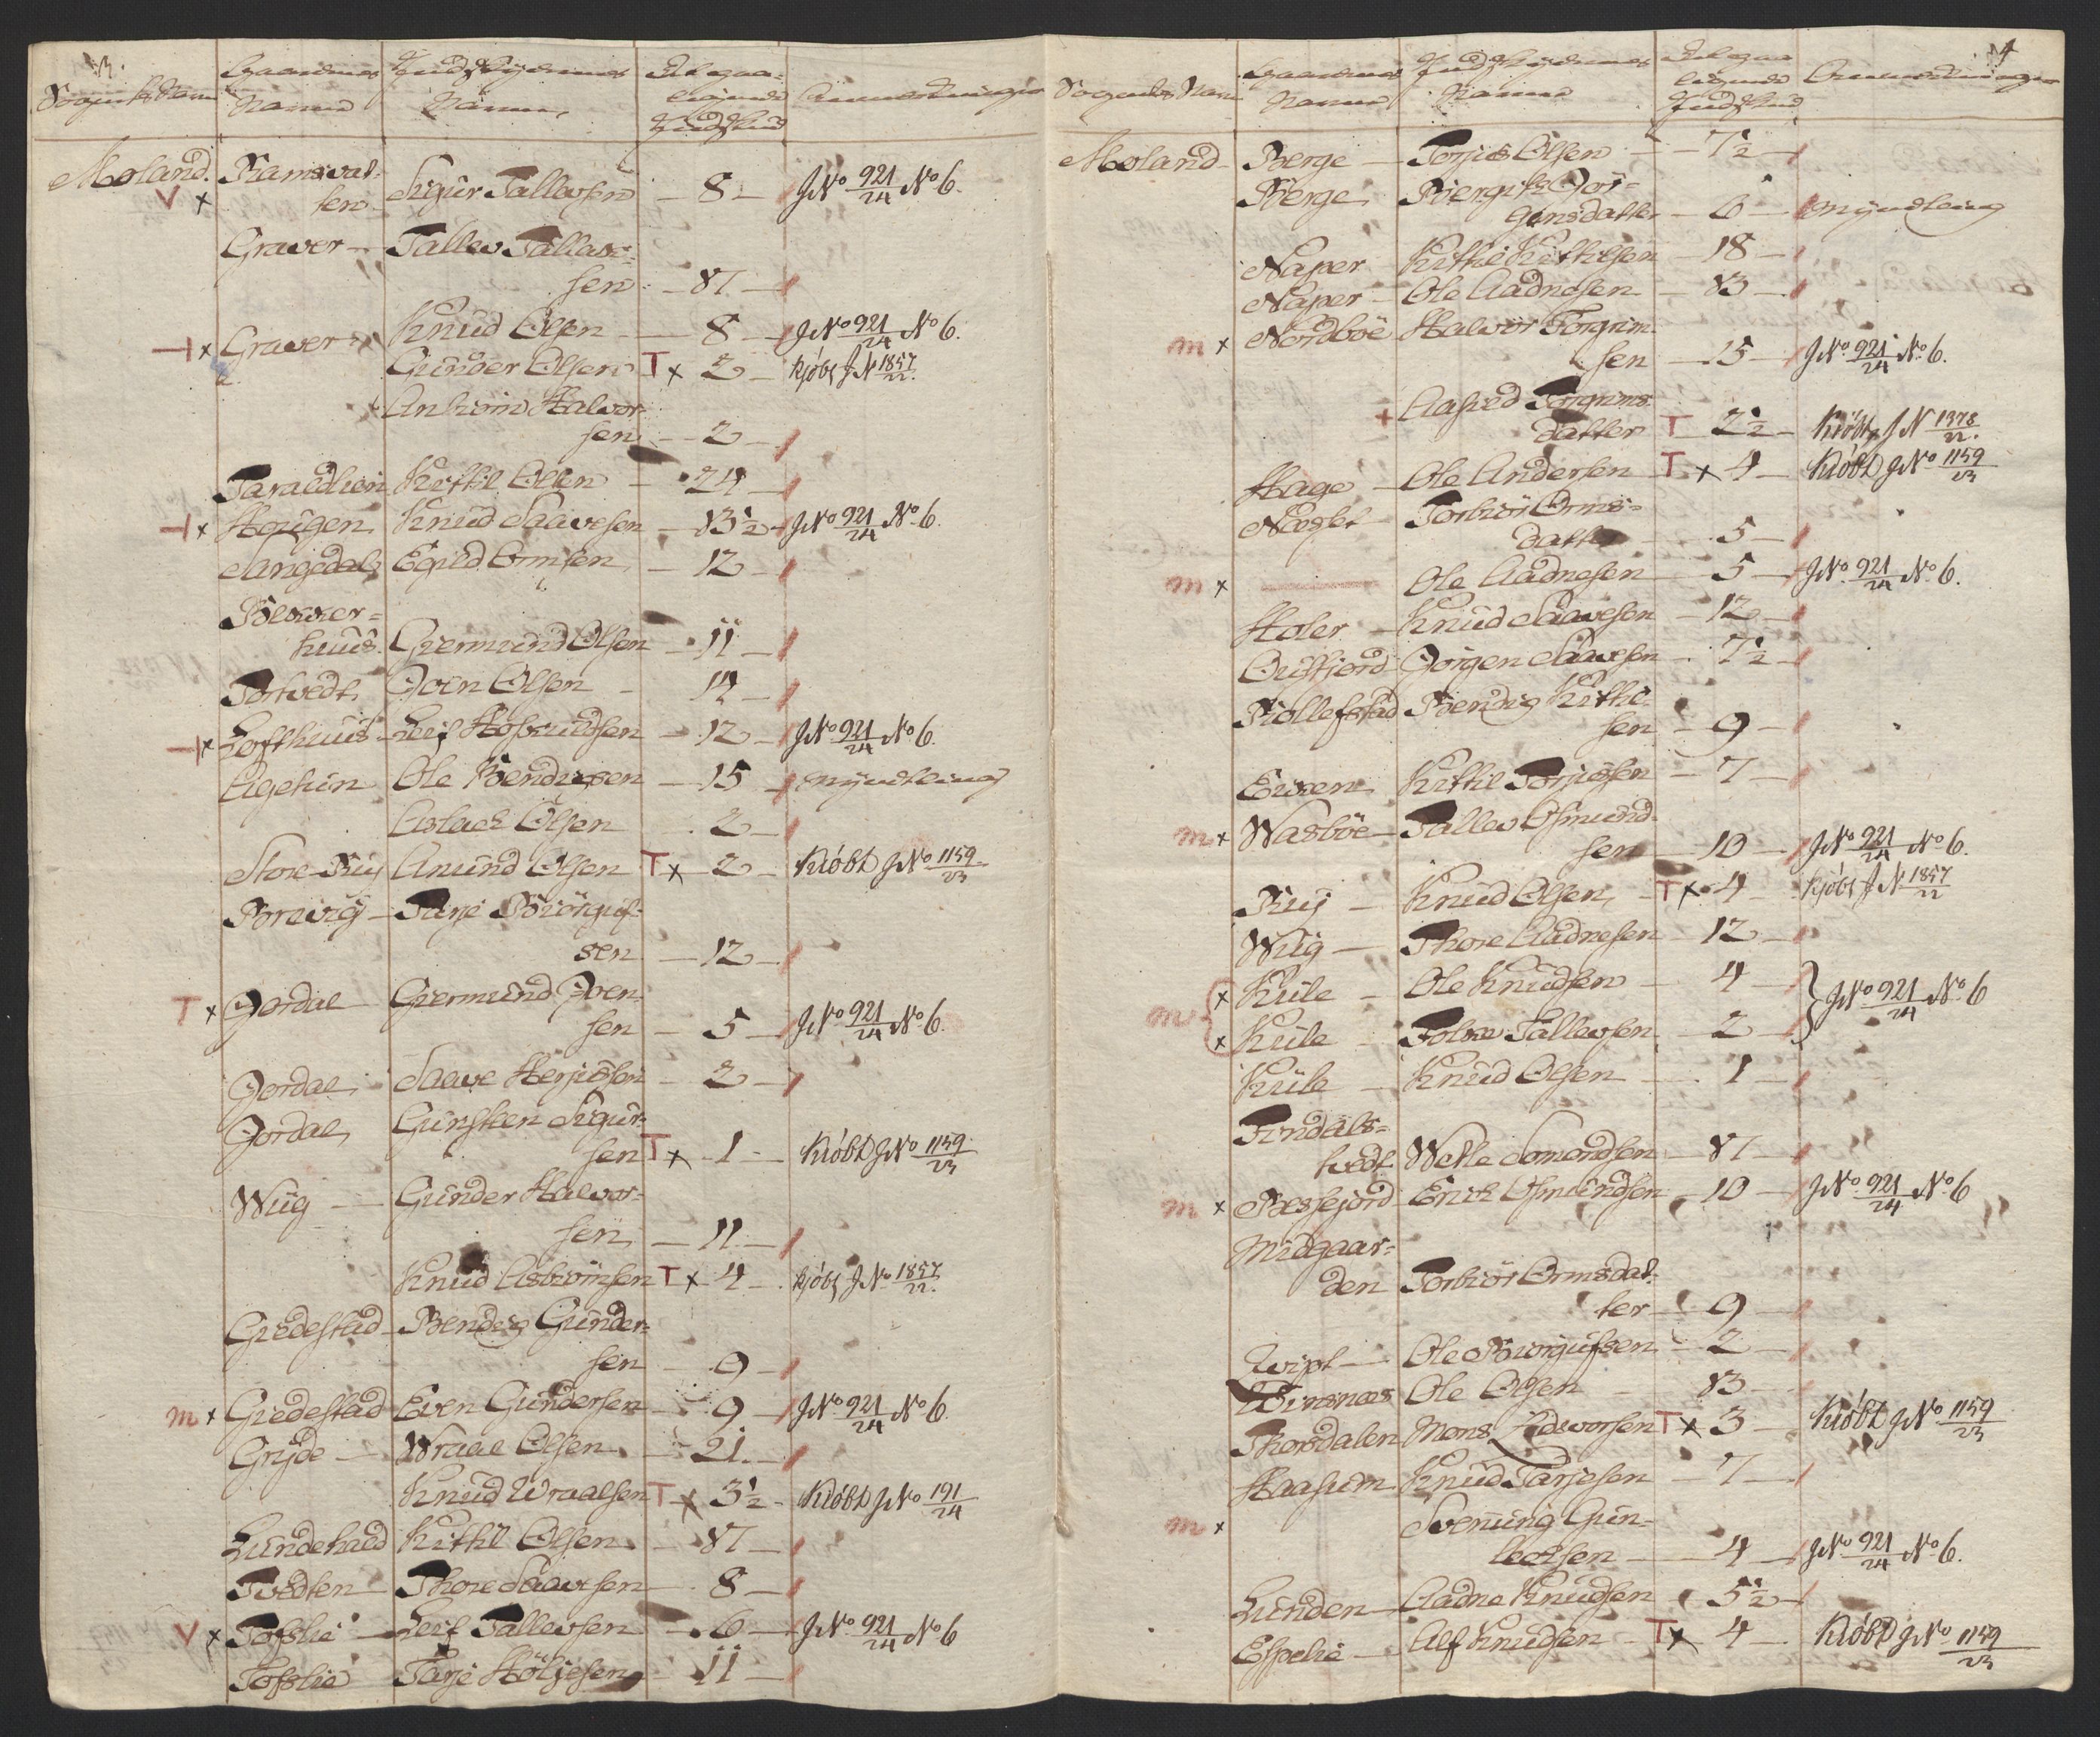 3.
Sognets Navn
Gaardenes Navne
Indskydernes Navne
Tilbagaa-
ligende
Indskud
Anmerkninger
Moland. Ramsvat-
V x ten Sigur Tallevsen 8 J№ 921/24 № 6.
Graver Tallev Tallav-
sen 17
x Graver Knud Olsen 8 J№ 921/24 № 6.
Gunder Olsen T x 2 kjøbt J N 1857/22.
Anbiörn Halvor-
sen 2
Taraldlien Kittil Olsen 24
x Hougen Knud Saavesen 13½ J№ 921/24 № 6.
Sangedal Egild Omsen 12
huus. Giermund Olsen 11
Tortvedt Joen Olsen 14
x Lofthuus Leif Aasmundsen 12 J№ 921/24 № 6.
Ole Bendixen 15 myndling
Aslack Olsen 2
Store Rüj Anund Olsen T x 2 Kiöbt J№ 1159/23
Borsvig Tarje Biörguf-
sen 12
T x Jordal Giermund Joen-
sen 5 J№ 921/24 № 6.
Jordal Saave Herjussen 2
Jordal Gunsteen Sigur-
sen T x 1 Kiöbt J№ 1159/23
Wiig Gunder Halvor-
sen 11
Knud Asbiörnsen T x 4 kjøbt J№ 1857/22.
Giedestad Bendix Gunder-
sen 9
m x Giedestad Even Gundersen 9 J№ 921/24 № 6.
Gryde Wraal Olsen 21
Knud Wraalsen T x 3½ Kiöbt J№ 191/24
Lundekald Kittil Olsen 17
Tvedten Thore Saavesen 8
V x Tofslie Leif Tallevsen 6 J№ 921/24 № 6
Tofslie Tarje Höljesen 11
4
Sognets Navn
Gaardenes
Navne
Indskydernes
Navne
Tilbagaa
ligende
Indskud
Anmerkninger
Moland Berge Torjus Olsen 7½
Berge Biergith Jör-
gensdatter 6 Myndling
Naper Kittil Kittilsen 18
Naper Ole Aadnesen 13
m x Nordböe Halvor Torgrim-
sen 15 J№ 921/24 № 6.
+ Aasild Torgrims-
datter T 2½ Kiöbt J N 1378/22.
Hage Ole Andersen T x 4 Kiöbt J№ 1159/23
Næset Torbiör Orms-
datter 5
m x Ole Aadnesen 5 J№ 921/24 № 6.
Holer Knud Saavesen 12
Qvitfjord Jörgen Saavesen 7½
Rollefstad Bendix Kittil-
sen 9
Eiken Kittil Torjussen 7
m x Wasböe Tallev Osmund-
sen 10 J№ 921/24 № 6.
Rüj Knud Olsen T x 4 kjøbt J N 1857/22
Wiig Thore Aadnesen 12
x Kiile Ole Knudsen 4
m J№ 921/24 № 6
x Kiile Tallevsen 2
Kiile Knud Olsen 1
Findals-
tvedt Wetle Amondsen 17
m x Bessefjord Erik Osmundsen 10 J№ 921/24 № 6
Midgaar-
den Torbiör Ormsdat-
ter 9
Ole Biörgufsen 2
Ole Olsen 13
Thorsdalen Mons Halvorsen T x 3 Kiöbt J№ 1159/23
Haasum Knud Tarjesen 7
m x Svenung Gun-
lecksen 4 J№ 921/24 № 6.
Lunden Aadne Knudsen 5½
Espelie Alf Knudsen T x 4 Kiöbt J№ 1159/23